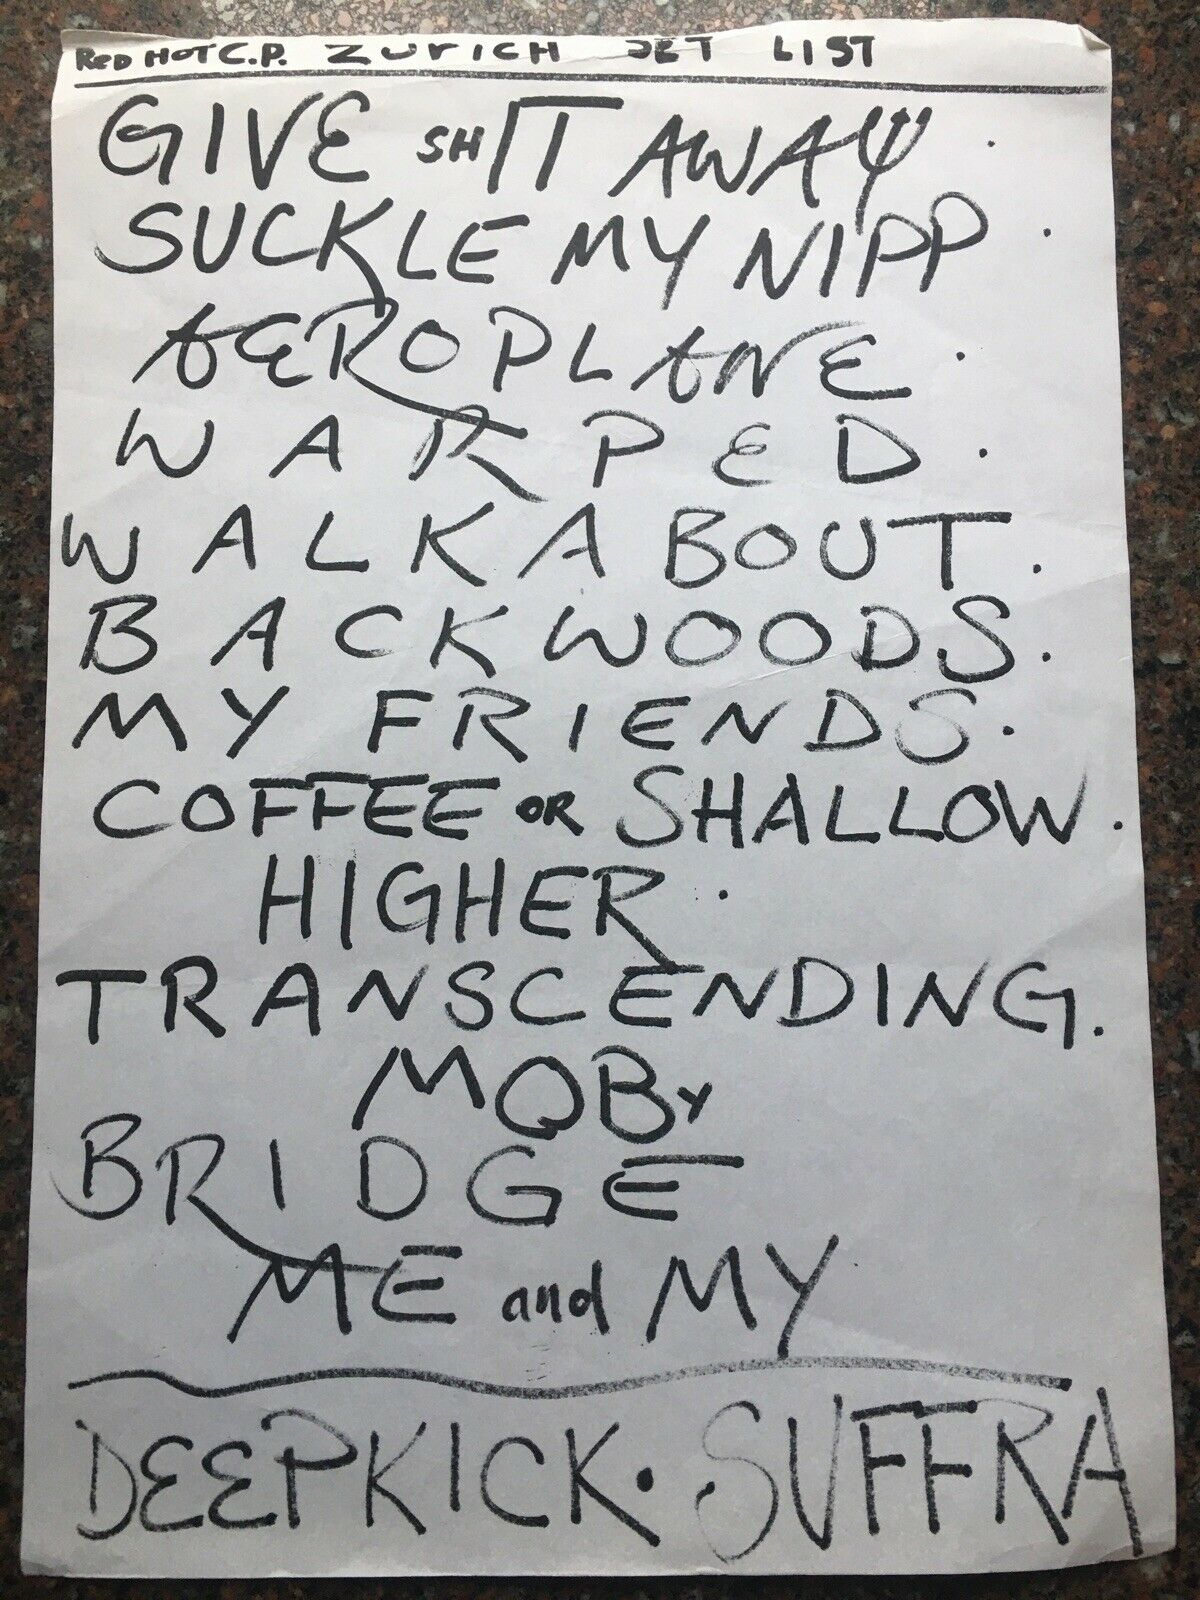 RED HOT C.P. ZURICH SET LIST
GIVE SHIT AWAY .
SUCKLE MY NIPP .
AEROPLANE .
WARPED .
WALKABOUT .
BACKWOODS .
MY FRIENDS .
COFFEE OR SHALLOW .
HIGHER .
TRANSCENDING .
MOBY
BRIDGE
ME and MY
DEEPKICK · SUFFRA